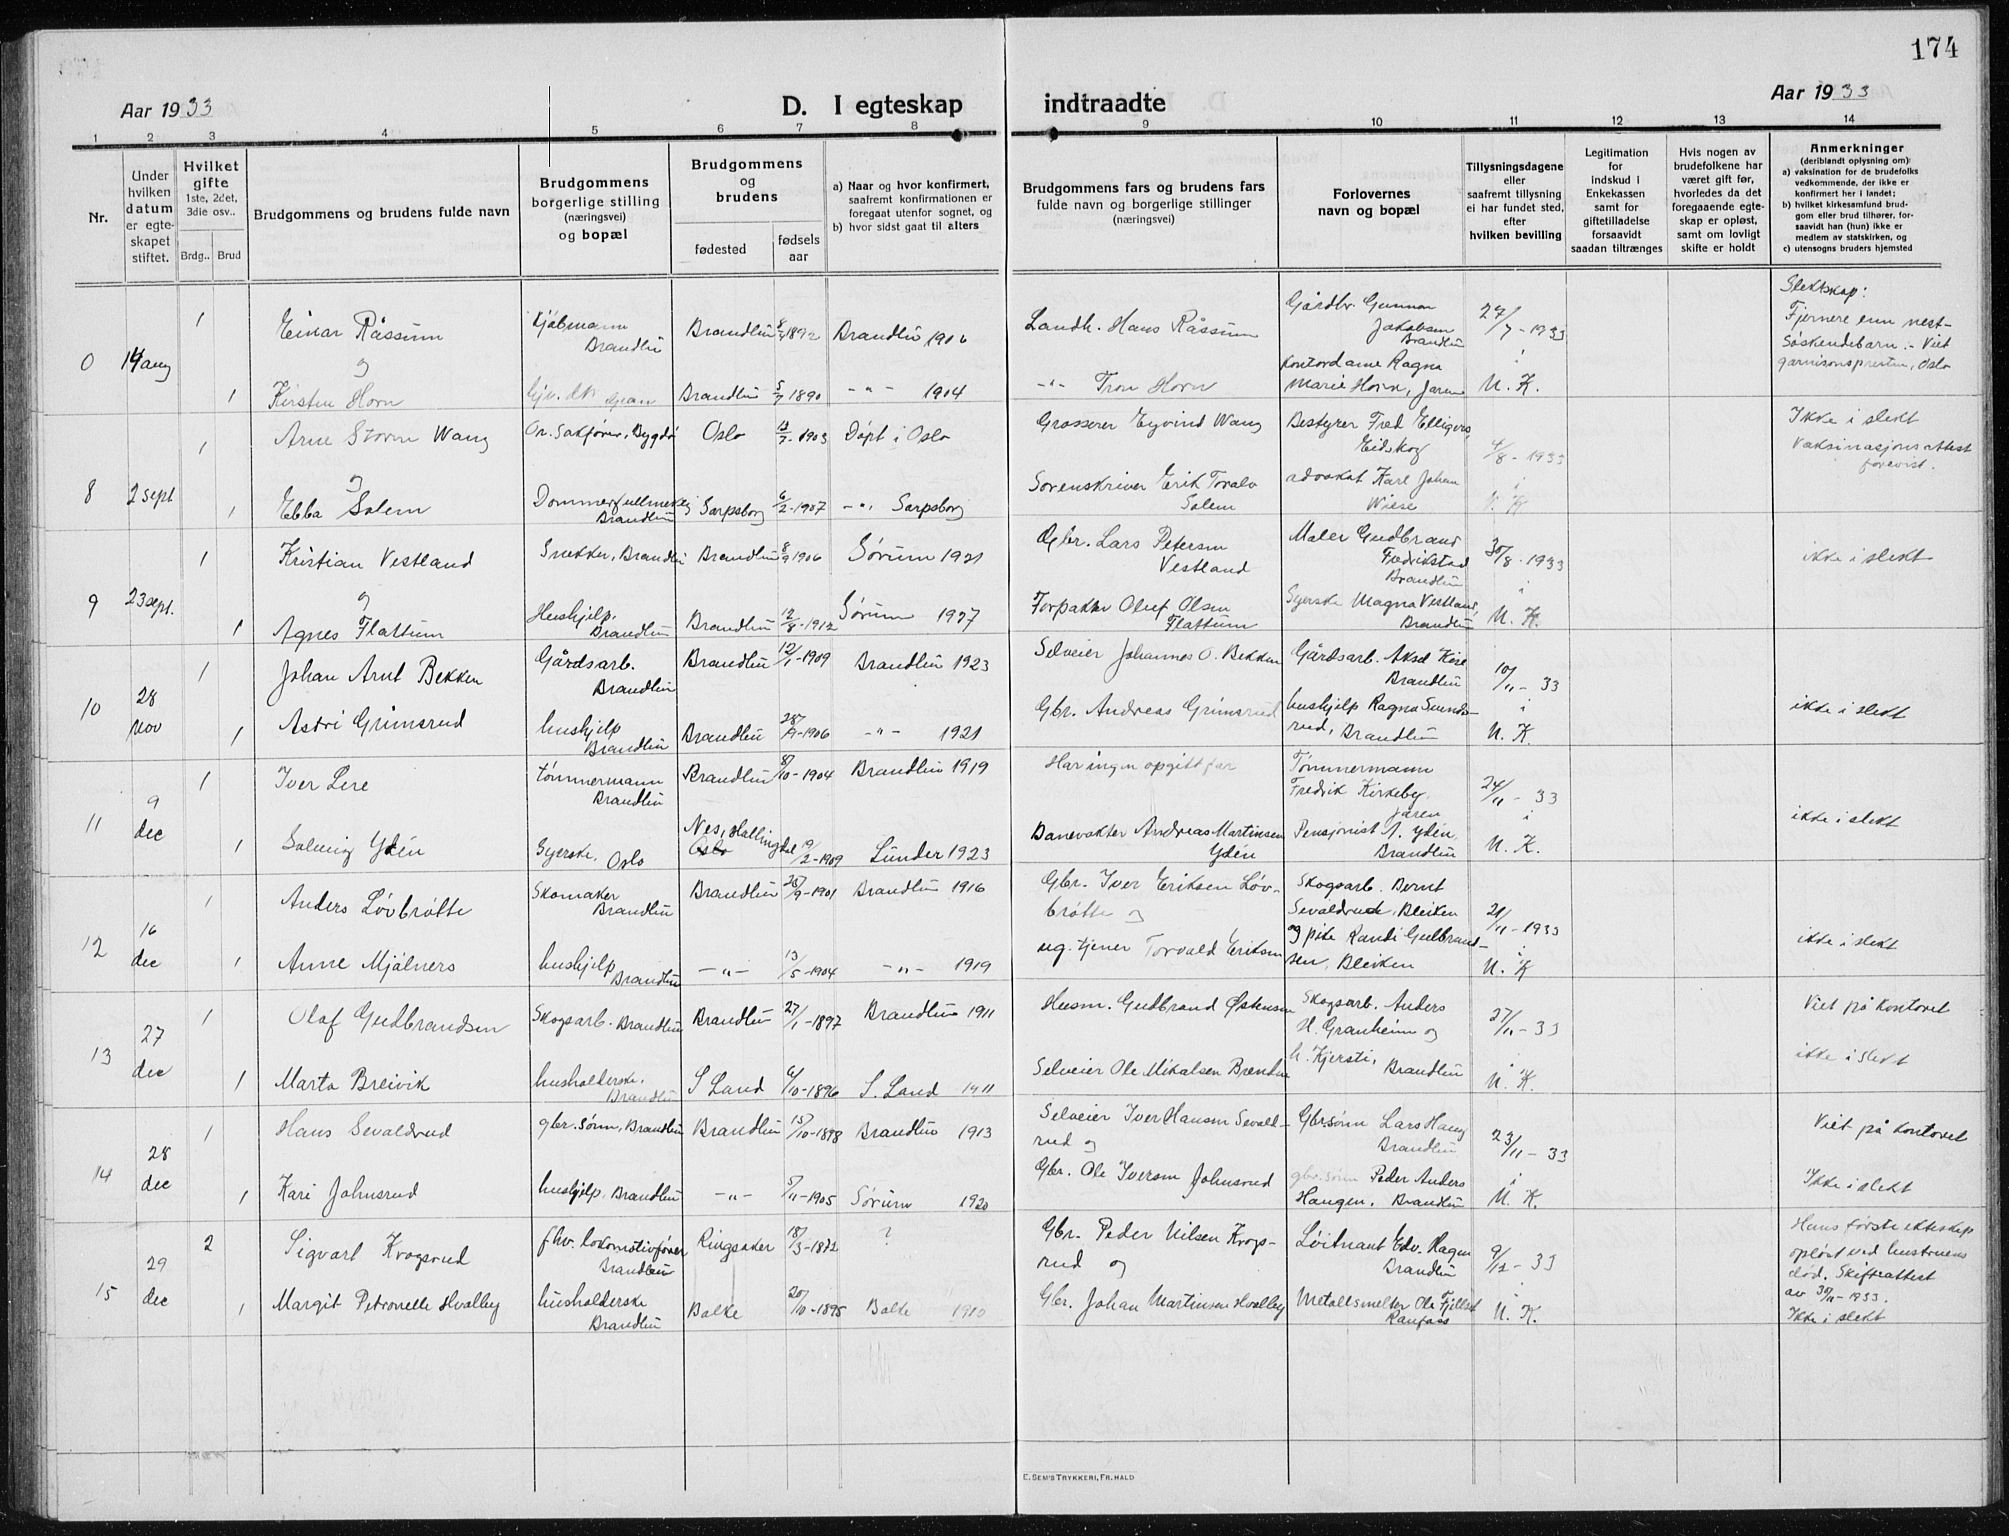 174
Aar 1933
D. I egteskap
indtraadte
Aar 1933
1 2 3 4 5 6 7 8 9 10 11 12 13 14
Nr.
Under hvilken datum er egteskapet stiftet.
Hvilket gifte
1ste, 2det, 3die osv..
Brdg.. Brud
Brudgommens og brudens fulde navn
Brudgommens borgerlige stilling (næringsvei) og bopæl
Brudgommens og brudens
fødested
fødsels aar
a) Naar og hvor konfirmert, saafremt konfirmationen er foregaat utenfor sognet, og
b) hvor sidst gaat til alters
Brudgommens fars og brudens fars fulde navn og borgerlige stillinger (næringsvei)
Forlovernes navn og bopæl
Tillysningsdagene eller saafremt tillysning ei har fundet sted, efter hvilken bevilling
Legitimation for indskud i Enkekassen samt for giftetilladelse forsaavidt saadan tiltrænges
Hvis nogen av brudefolkene har været gift før, hvorledes da det foregaaende egteskap er opløst, samt om lovligt skifte er holdt
Anmerkninger
(deriblandt oplysning om)
a) vaksination for de brudefolks vedkommende, der ikke er konfirmert her i landet;
b) hvilket kirkesamfund brudgom eller brud tilhører, forsaavidt han (hun) ikke er medlem av statskirken, og
c) utensogns bruders hjemsted
14 aug
1 Einar Råssum Brandbu Brandbu 8/4 1892 Brandbu 1906 Landh. Hans Råssum Gårdbr. Gunnar Jakobsen Brandbu 24/7 - 1933
Slektskap: Fjernere enn nest-søskendebarn. - Viet garnisonspresten, Oslo
og
1 Kirsten Horn Gran Brandbu 5/7 1890 -"- 1904 -"- Tron Horn Kontordame Ragna Marie Horn, Jaren i U. K.
8 2 sept
1 Arne Storm Wang Or. Sakfører, Bygdø Oslo 13/7 - 1903 Døpt i Oslo Grosserer Eyvind Wang Bestyrer Fred Elligers, Eidskog 4/8 - 1933
Ikke i slekt Vaksinasjonsattest forevist.
og
1 Ebba Solem Dommerfullmektig Brandbu Sarpsborg 6/2 - 1907 -"- Sarpsborg Sorenskriver Erik Toralv Solem advokat Karl Johan Wiese i U. K
9 23 sept.
1 Kristian Vestland Snekker, Brandbu Brandbu 8/9 1906 Sørum 1921 Gbr. Lars Petersen Vestland Maler Gudbrand Fredrikstad Brandbu 30/8 - 1933 ikke i slekt
og
1 Agnes Flattum Hushjelp, Brandbu Brandbu 12/8 - 1912 Sørum 1927 Forpakter Oluf Olsen Flattum Syerske Magna Vestland, Brandbu i U. K.
10 28 nov
1 Johan Arnt Bekken Gårdsarb. Brandbu Brandbu 12/1 - 1909 Brandbu 1923 Selveier Johannes O. Bekken Gårdsarb. Aksel Brandbu 10/11 - 33
1 Astri Grimsrud hushjelp Brandbu Brandbu 28/9 - 1906 -"- 1921 Gbr. Andreas Grimsrud hushjelp Ragna Svendsrud, Brandbu i U. K. ikke i slekt
11 9 dec
1 Iver Lere tømmermann Brandbu Brandbu 8/10 - 1904 Brandbu 1919 Har ingen opgitt far Tømmermann Fredrik Kirkeby, Jaren 24/11 - 33
1 Solveig Ydén Syerske, Oslo Nes, Hallingdal Oslo 19/2 - 1909 Lunder 1923 Banevokter Andreas Martinsen Ydén Pensjonist A. Ydén, Brandbu i U. K. ikke i slekt
12 16 dec
1 Anders Løvbrøtte Skomaker Brandbu Brandbu 28/9 - 1901 Brandbu 1916 Gbr. Iver Eriksen Løvbrøtte og Skogsarb. Bernt Sevaldrud, Bleiken 21/11 - 1933
1 Anne Mjølners hushjelp Brandbu -"- 13/5 - 1904 -"- 1919 ug. tjener Torvald Eriksen og pike Randi Gulbrandsen, Bleiken i U. K ikke i slekt
13 27 dec
1 Olaf Gudbrandsen Skogsarb. Brandbu Brandbu 27/1 - 1897 Brandbu 1911 Husm. Gudbrand Østensen Skogsarb. Anders H. Granheim og 27/11 - 33 Viet på kontoret
1 Marta Breivik husholderske, Brandbu S Land 6/10 - 1896 S. Land 1911 Selveier Ole Mikalsen h. Kjersti, Brandbu i U. K. ikke i slekt
14 28 dec
1 Hans Sevaldrud gbr.sønn, Brandbu Brandbu 15/10 - 1898 Brandbu 1913 Selveier Iver Hansen Sevaldrud og Gbrsønn Lars Haug Brandbu 23/11 - 33 Viet på kontoret
1 Kari Johnsrud hushjelp, Brandbu -"- 5/11 - 1905 Sørum 1920 Gbr. Ole Iversen Johnsrud gbr.sønn Peder Anders Haugen, Brandbu i U. K. Ikke i slekt
15 29 dec
2 Sigvart Krogsrud fhv. lokomotivfører Brandbu Ringsaker 18/3 - 1872 ? Gbr. Peder Nilsen Krogsrud og Løitnant Edv. Hagen Brandbu 9/12 - 33
Hans første ekteskap opløst ved hustruens død. Skifteattest av 30/11 - 1933. Ikke i slekt
1 Margit Petronelle Hvalby husholderske Brandbu Balke 20/10 - 1895 Balke 1910 Gbr. Johan Martinsen Hvalby Metallsmelter Ole Raufoss i U. K.
E. SEM'S TRYKKERI, FR.HALD